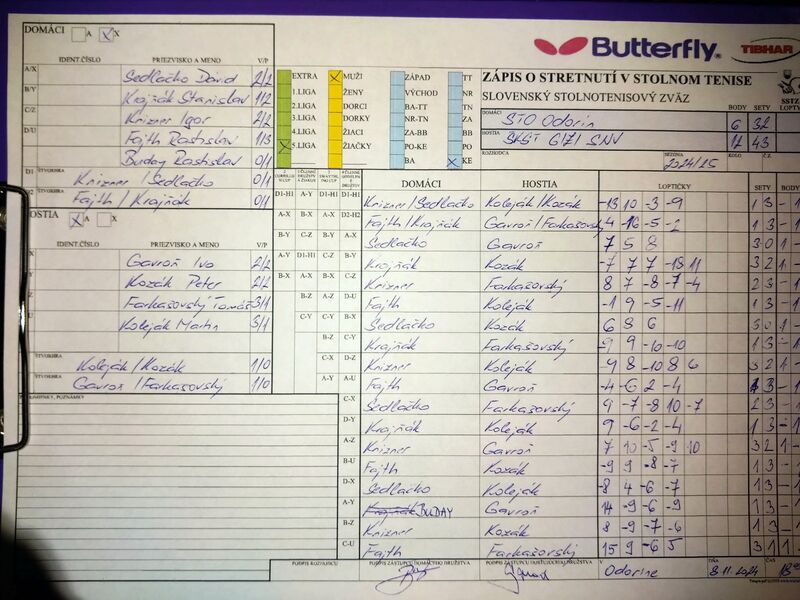 DOMÁCI A X
IDENT.ČÍSLO PRIEZVISKO A MENO V/P
A/X Sedlačko Dávid 2/2
B/Y Krajňák Stanislav 1/2
C/Z Krizner Igor 2/2
D/U Fajth Rastislav 1/3
Buday Rastislav 0/1
Krizner/Sedlačko 0/1
Fajth/Krajňák 0/1
HOSTIA A X
IDENT.ČÍSLO PRIEZVISKO A MENO V/P
Gavroň Ivo 2/2
Kozák Peter 2/2
Farkašovský Tomáš 3/1
Koleják Martin 3/1
ŠTVORHRA
Koleják/Kozák 1/0
ŠTVORHRA
Gavroň/Farkašovský 1/0
EXTRA MUŽI ZÁPAD TT
1.LIGA ŽENY VÝCHOD NR
2.LIGA DORCI BA-TT TN
3.LIGA DORKY NR-TN ZA
4.LIGA ŽIACI ZA-BB BB
5.LIGA ŽIAČKY PO-KE PO
BA KE
Butterfly TIBHAR
ZÁPIS O STRETNUTÍ V STOLNOM TENISE
SLOVENSKÝ STOLNOTENISOVÝ ZVÄZ
SSTZ
BODY SETY LOPTY
DOMÁCI STO Odorín 6 32
HOSTIA ŠKŠT G1Z1 SNV 12 43
ROZHODCA SEZÓNA 2024/25 KOLO
DOMÁCI HOSTIA LOPTIČKY SETY BODY
D1-H1 A-Y D1-H1 D1-H1 Krizner/Sedlačko Koleják/Kozák -13 10 -3 -9 1 3
A-X B-X A-X D2-H2 Fajth/Krajňák Gavroň/Farkašovský 4 -16 -5 -2 1 3
B-Y C-Z B-Y A-X Sedlačko Gavroň 7 5 8 3 0 1
A-Y D1-H1 C-Z B-Y Krajňák Kozák -7 7 7 -13 11 3 2 1
B-X A-X B-X C-Z Krizner Farkašovský 8 7 -8 -7 -4 2 3
B-Z A-Z D-U Fajth Koleják -1 9 -5 -11 1 3
C-Y C-Y B-X Sedlačko Kozák 6 8 6 3 0 1
B-Z C-Y Krajňák Farkašovský -9 9 -10 -10 1 3
C-X D-Z Krizner Koleják -9 8 -10 8 6 3 2 1
A-Y A-U Fajth Gavroň -4 -6 2 -4 1 3
C-X Sedlačko Farkašovský 9 -7 -8 10 -7 2 3
D-Y Krajňák Koleják 9 -6 -2 -4 1 3
A-Z Krizner Gavroň 7 10 -5 -9 10 3 2 1
B-U Fajth Kozák -9 9 -8 -7 1 3
D-X Sedlačko Koleják -8 4 -6 -7 1 3
A-Y Krajňák BUDAY Gavroň 14 -9 -6 -9 1 3
B-Z Krizner Kozák 8 -9 -7 -6 1 3
C-U Fajth Farkašovský 15 9 -6 5 3 1 1
PODPIS ROZHODCU PODPIS ZÁSTUPCU DOMÁCEHO DRUŽSTVA PODPIS ZÁSTUPCU HOSŤUJÚCEHO DRUŽSTVA V Odoríne DŇA 8.11.2024 ČAS